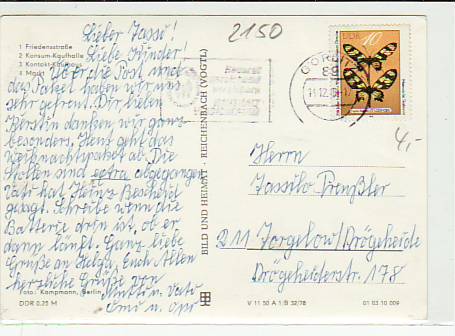 Lieber Tassi!
Liebe Kinder!
1 Friedensstraße
2 Konsum-Kaufhalle
3 Kontakt-Kaufhaus
4 Markt
Über die Post und
das Paket haben wir uns
sehr gefreut. Dir lieben
Kerstin danken wir ganz
besonders. Heut geht das
Weihnachtspaket ab. Die
Stollen sind extra abgegangen.
Vati hat Heinz Bescheid
gesagt. Schreibe wenn die
Batterie drin ist, ob er
dann läuft. Ganz liebe
Grüße an Helga. Euch Allen
herzliche Grüße von
Mutti u. Vati
Omi u. Opi
Foto: Kampmann, Berlin
DDR 0,25 M
BILD UND HEIMAT · REICHENBACH (VOGTL)
2150
DDR
10
GÖRLITZ
89
4,-
Herrn
Tassilo Preußler
211 Torgelow/Drögeheide
Drögeheiderstr 178
V 11 50 A 1/B 32/78
01 03 10 009